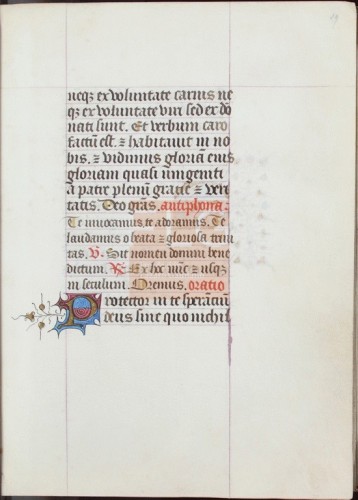 neqz ex voluntate carnis ne
qz ex voluntate viri sed ex do
nati sunt. Et verbum caro
factū est. ⁊ habitavit in no
bis. ⁊ vidimus gloriā eius
gloriam quasi unigeniti
a patre plenū gracie ⁊ veri
tatis. Deo gr̄as. antiphona.
Te invocamus, te adoramus. Te
laudamus o beata ⁊ gloriosa trini
tas. V. Sit nomen domini bene
dictum. R. Ex hoc nūc ⁊ usqz
in seculum. Oremus. oratio
Protector in te sperancīū
deus sine quo nichil